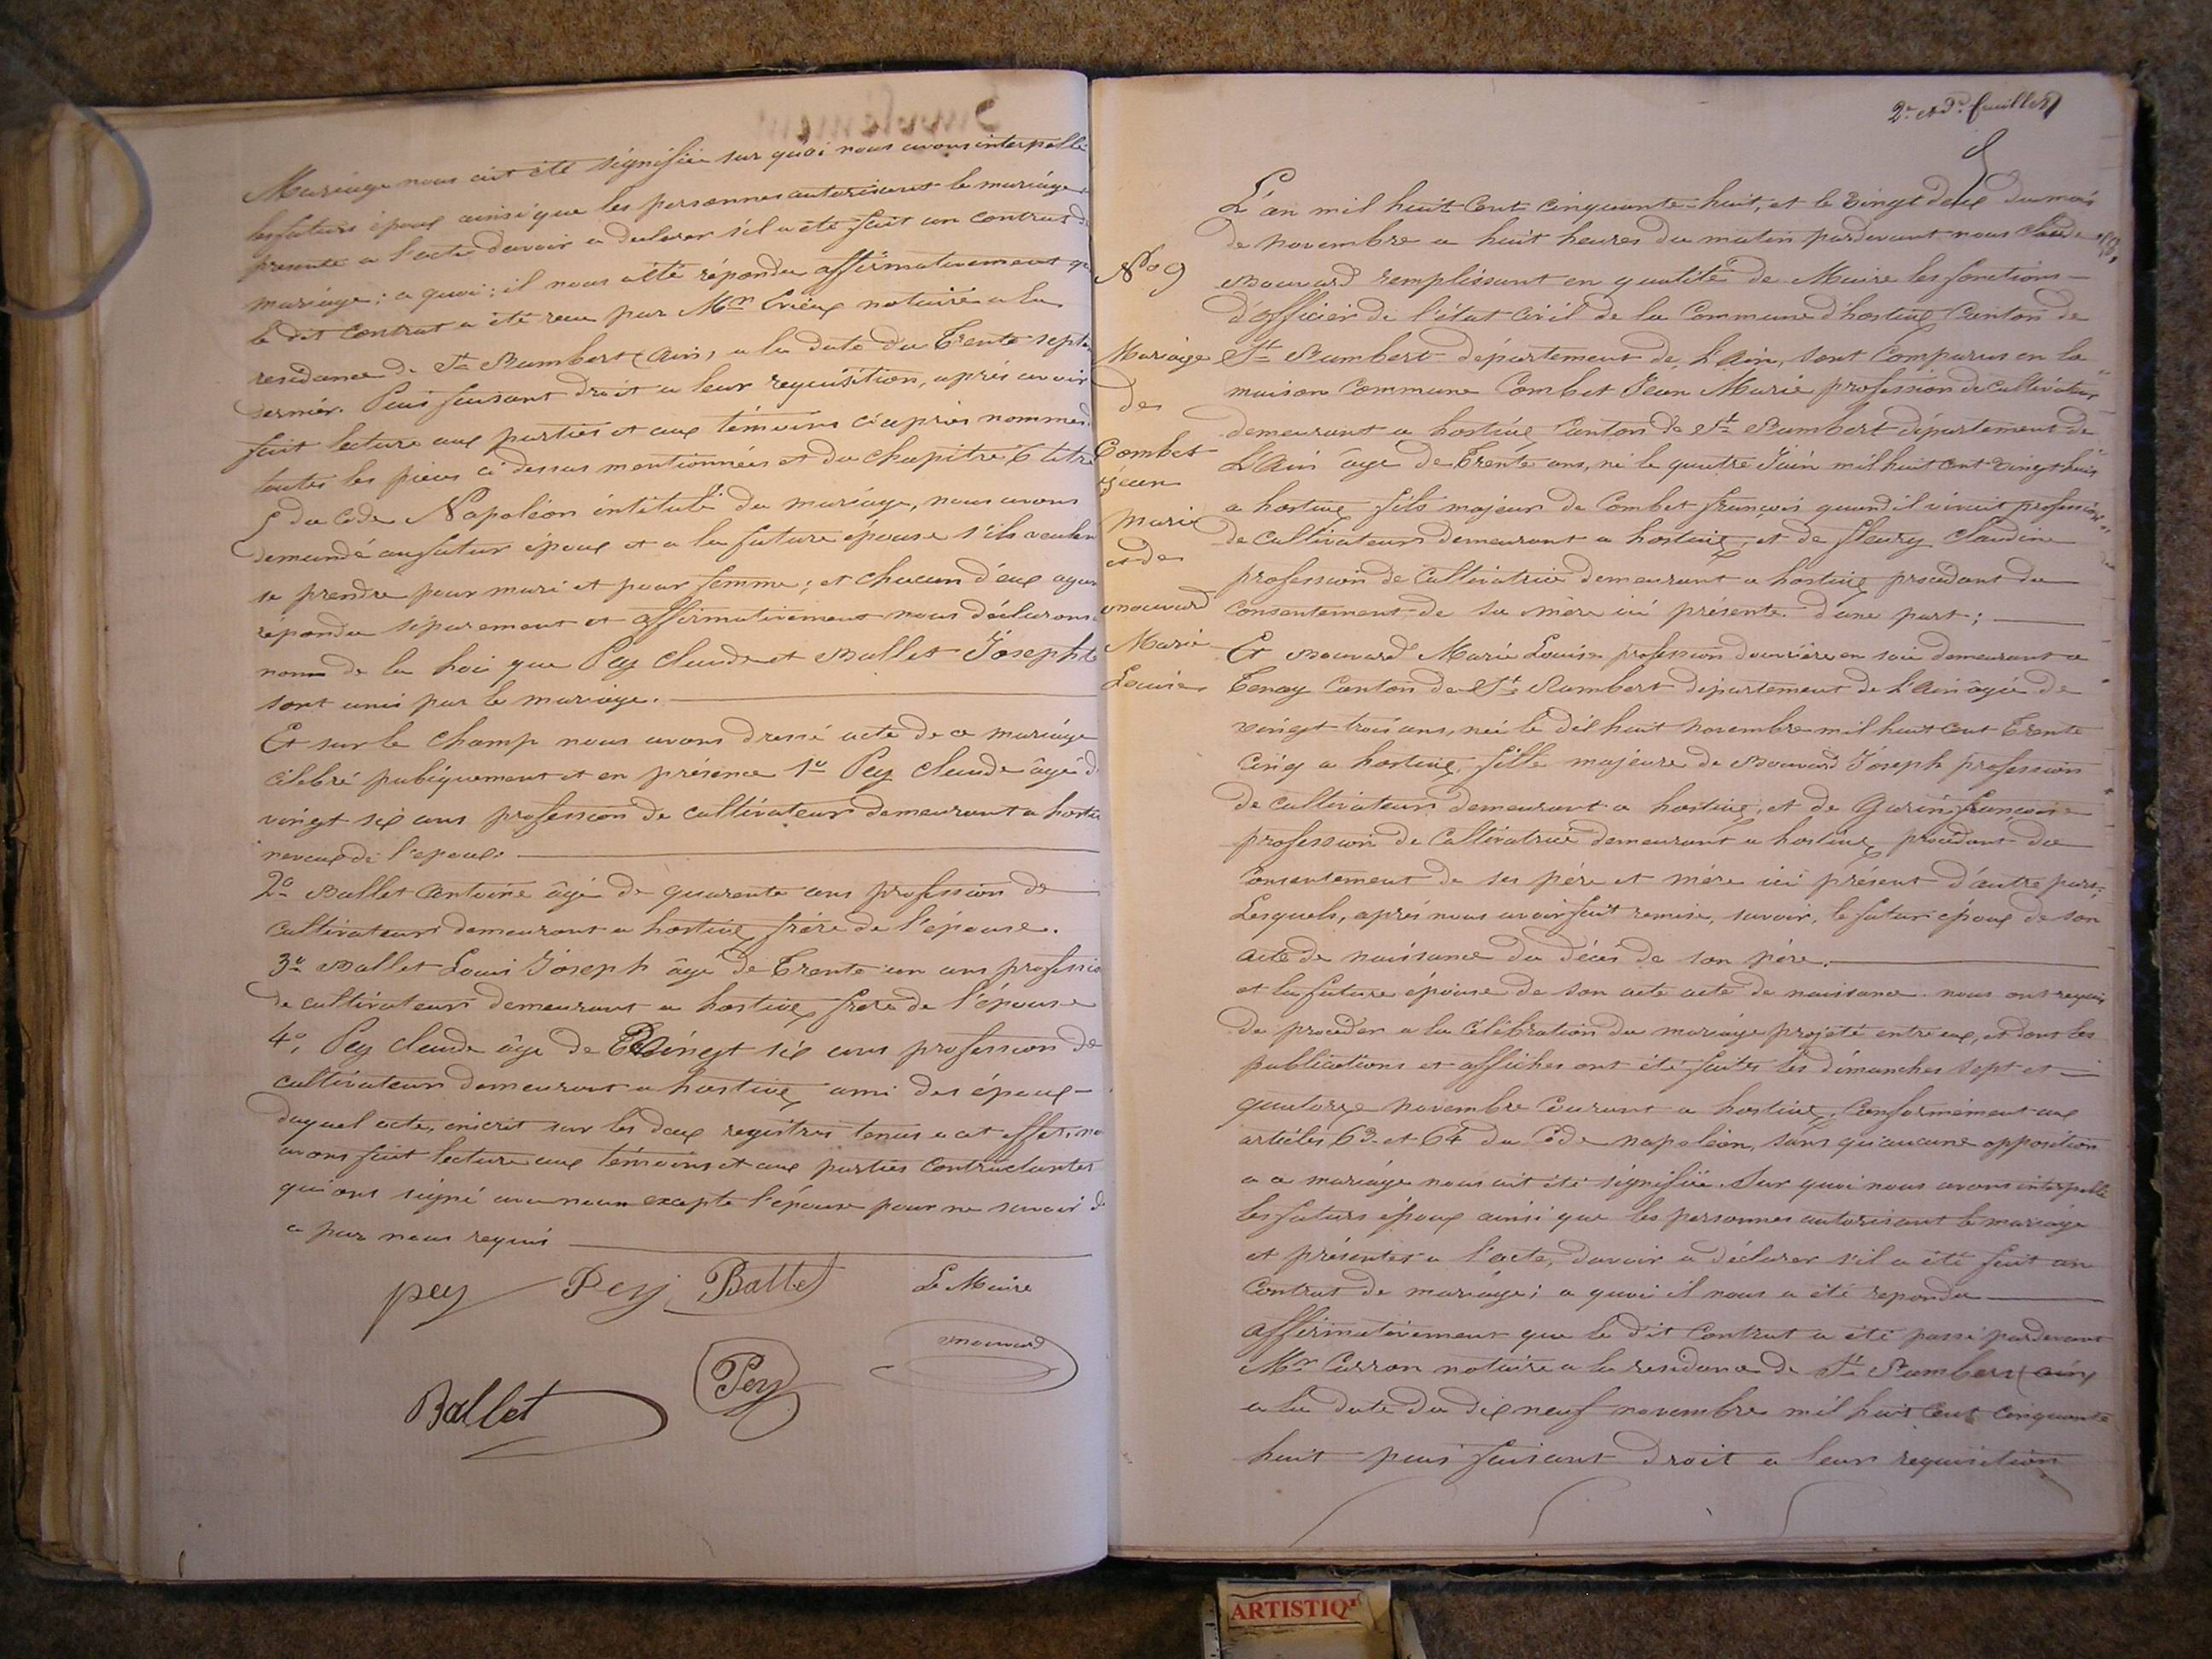 Mariage nous ait été signifiée sur quoi nous avons interpellé
les futurs époux ainsi que les personnes autorisant le mariage
presente a l'acte davoir a declarer s'il a été fait un contrat de
mariage; a quoi; il nous a été répondu affirmativement que
le dit Contrat a été reçu par Mr notaire a la
residance de St Rambert (Ain) a la date du Trente sept
dernier. Puis faisant droit a leur requisition, après avoir
fait lecture aux parties et aux témoins ci après nommés
toutes les pieces ci dessus mentionnées et du chapitre 6 titre
5 du Code Napoléon intitulé du mariage, nous avons
demandé au futur époux et a la future épouse s'ils veulen
se prendre pour mari et pour femme; et chacun d'eux ayan
répondu séparement et affirmativement nous déclarons
nom de la Loi que Pey Claude et Ballet Josephte
sont unis par le mariage.
Et sur le Champ nous avons dressé acte de ce mariage
célébré publiquement et en présence 1o Pey Claude âgé d
vingt six ans profession de cultivateur demeurant a hosti
neveux de l'epoux.
2o Ballet Antoine âgé de quarante ans profession de
cultivateur demeurant a hostiex frère de l'épouse.
3o Ballet Louis Joseph âgé de Trente un ans professio
de cultivateur demeurant a hostiex frere de l'épouse
4o, Pey Claude âge de Vingt six ans profession de
cultivateur demeurant a hostiex ami des époux
duquel acte, inscrit sur les deux registres tenus a cet effet, no
avons fait lecture aux témoins et aux parties Contractantes
qui ont signé avec nous excepte l'épouse pour ne savoir d
ce par nous requis
pey Pey Ballet Le Maire
Bouvard
Ballet Pey
2e et Dr feuillet
N° 9
Mariage
de
Combet
Jean
Marie
et de
Bouvard
Marie
Louise
L'an mil huit Cent cinquante-huit, et le vingt deux du mois
de novembre a huit heures du matin pardevant nous Claude
Bouvard remplissant en qualité de Maire les fonctions
d'officier de l'état Civil de la Commune d'hostiex Canton de
St Rambert département de L'Ain, sont Comparus en la
maison Commune Combet Jean Marie profession de cultivateur
demeurant a hostiex Canton de St Rambert département de
L'Ain âgé de Trente ans, né le quatre Juin mil huit cent vingt huit
a hostiex fils majeur de Combet françois quand il vivait profession
de cultivateur demeurant a hostiex, et de fleury Claudine
profession de Cultivatrice demeurant a hostiex procédant du
consentement de sa mère ici présente d'une part;
Et Bouvard Marie Louise profession d'ouvrière en soie demeurant a
Tenay Canton de St Rambert département de L'Ain âgée de
vingt trois ans, née le dix huit Novembre mil huit cent Trente
cinq a hostiex, fille majeure de Bouvard Joseph profession
de cultivateur demeurant a hostiex, et de Garin françoise
profession de Cultivatrice demeurant a hostiex procédant du
Consentement de ses père et mère ici présent d'autre part;
Lesquels, après nous avoir fait remise, savoir, le futur époux de son
acte de naissance du décès de son père.
et la future épouse de son acte acte de naissance nous ont requis
de procéder a la célébration du mariage projeté entre eux, et dont les
publications et affiches ont été faites les dimanches sept et
quatorze novembre Courant a hostiex, Conformément aux
articles 63 et 64 du Code napoléon, sans qu'aucune opposition
a ce mariage nous ait été signifiée. Sur quoi nous avons interpellé
les futurs époux ainsi que les personnes autorisant le mariage
et présentes a l'acte, davoir a déclarer s'il a été fait un
Contrat de mariage; a quoi il nous a été repondu
affirmativement que le dit Contrat a été passé pardevant
Mr Carron notaire a la residance de St Rambert (ain)
a la date du dix neuf novembre mil huit Cent cinquante
huit puis faisant droit a leur requisition
ARTISTIQ